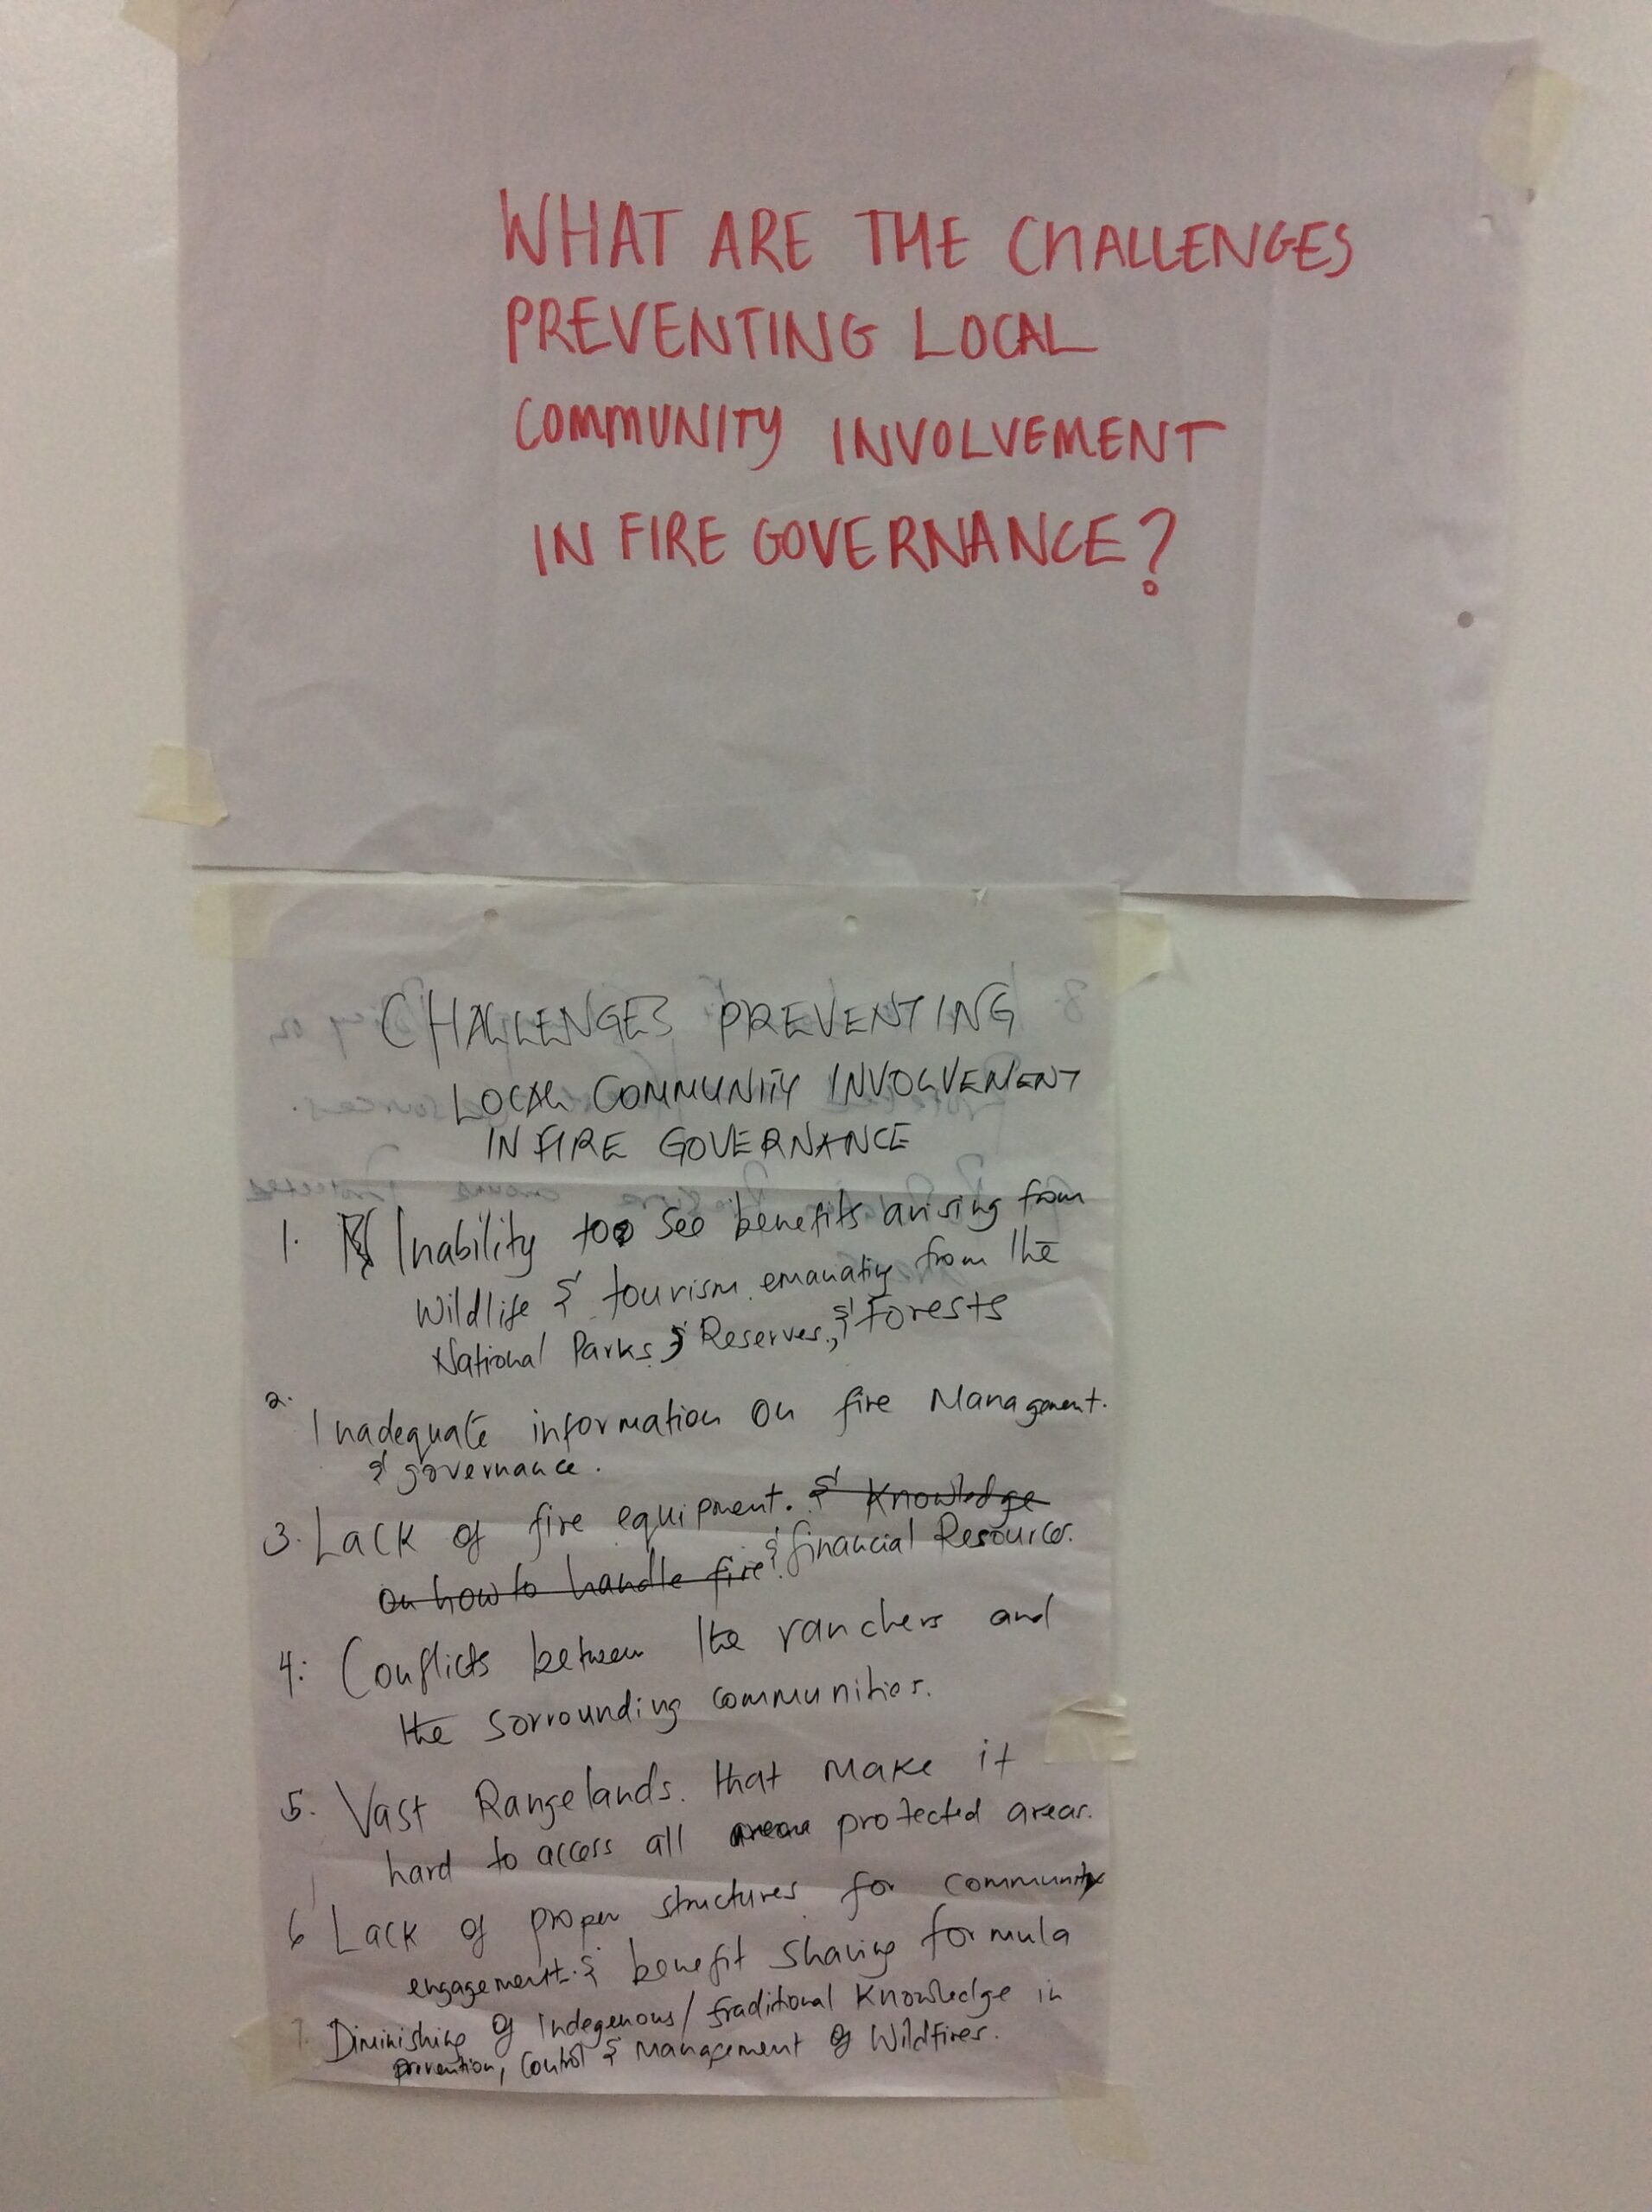 WHAT ARE THE CHALLENGES
PREVENTING LOCAL
COMMUNITY INVOLVEMENT
IN FIRE GOVERNANCE?
CHALLENGES PREVENTING
LOCAL COMMUNITY INVOLVEMENT
IN FIRE GOVERNANCE
1. Inability to see benefits arising from
Wildlife & tourism emanating from the
National Parks & Reserves, & Forests
2. Inadequate information on fire Management.
& governance.
3. Lack of fire equipment. & Knowledge
on how to handle fire. & financial Resources.
4: Conflicts between the ranchers and
the sorrounding communities.
5. Vast Rangelands. that make it
hard to access all protected areas.
6 Lack of proper structures for community
engagement. & benefit sharing formula
7. Diminishing of Indegenous/traditional Knowledge in
prevention, Control & Management of Wildfires.